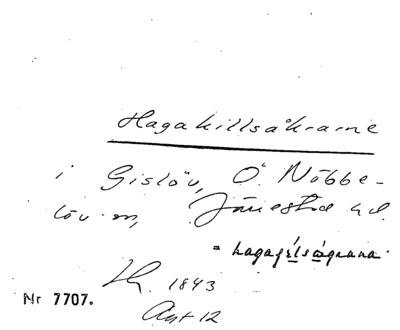 Hagakillsåkrarne
i Gislöv, Ö. Nöbbe-
löv sn, Järrestad hd.
= hagaɡélsågrana.
Lh. 1843
Akt 12
Nr 7707.